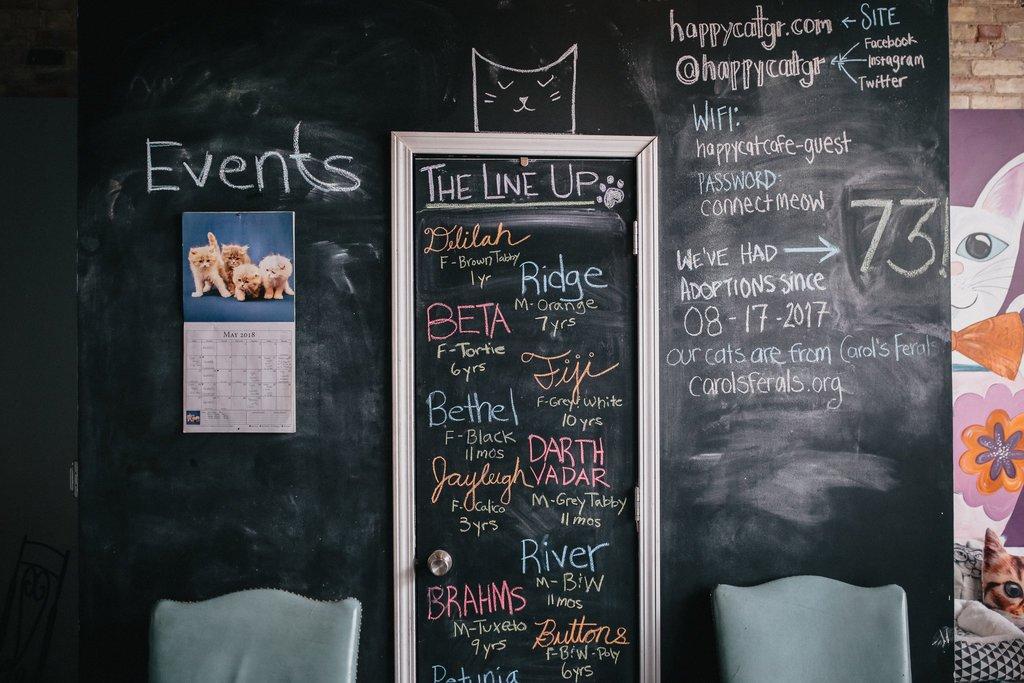 Events
MAY 2018
THE LINE UP
Delilah
F-Brown Tabby
1yr
Ridge
M-Orange
7yrs
BETA
F-Tortie
6yrs
Fiji
F-Grey & White
10yrs
Bethel
F-Black
11mos
DARTH
VADAR
M-Grey Tabby
11mos
Jayleigh
F-Calico
3yrs
River
M-B&W
11mos
BRAHMS
M-Tuxedo
9yrs
Buttons
F-B&W-Poly
6yrs
Petunia
happycatgr.com ← SITE
@happycatgr
Facebook
Instagram
Twitter
WIFI:
happycatcafe-guest
PASSWORD:
connectmeow
WE'VE HAD → 73!
ADOPTIONS since
08-17-2017
our cats are from Carol's Ferals
carolsferals.org